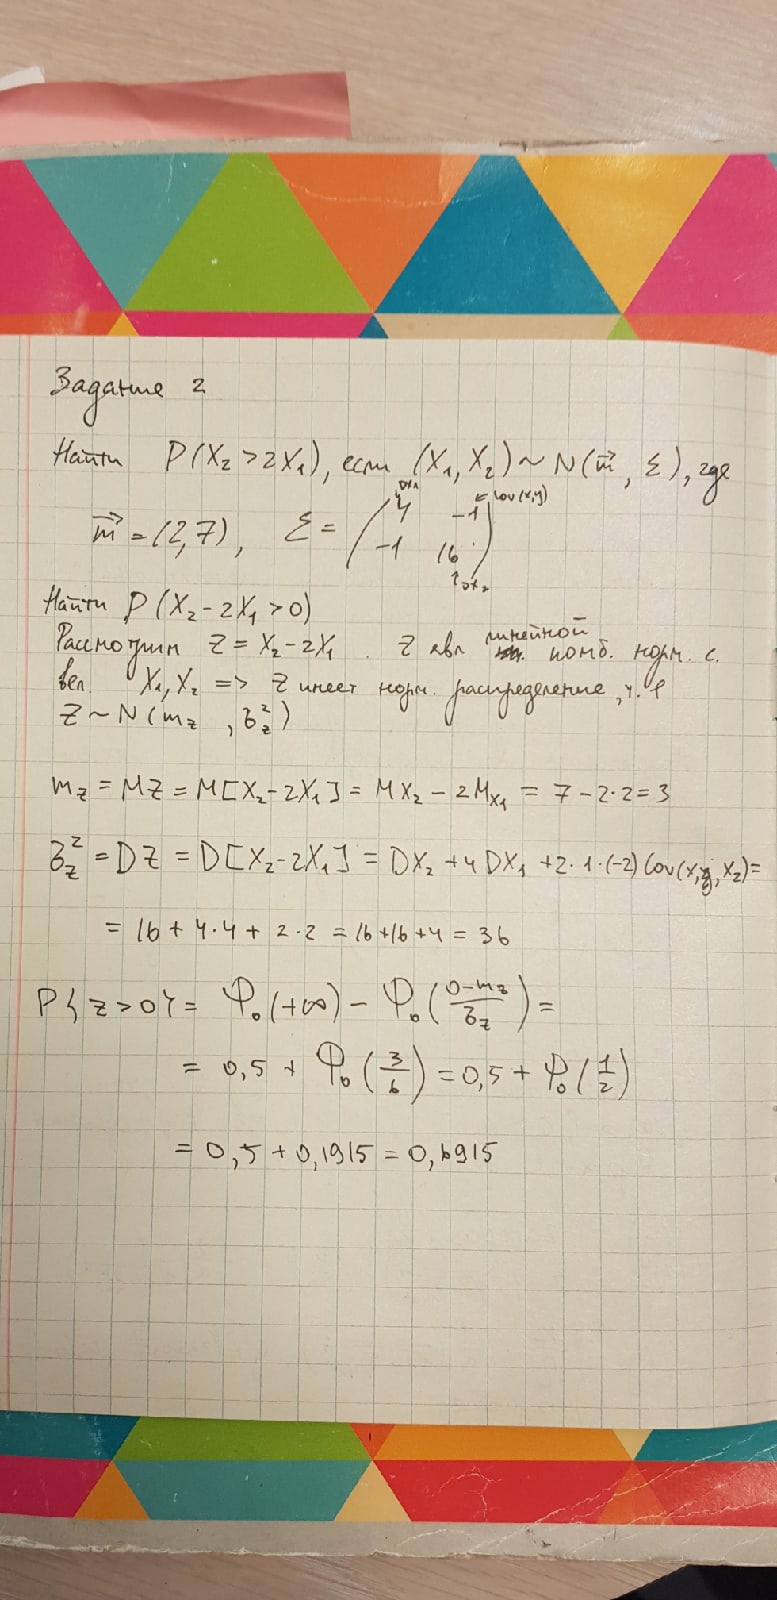 Задание 2
Найти P(X₂>2X₁), если (X₁, X₂) ~ N(m⃗, Σ), где
m⃗ = (2,7), Σ = (4 -1
-1 16)
DX₁
← Cov(x,y)
↑DX₂
Найти P(X₂-2X₁>0)
Рассмотрим Z = X₂-2X₁. Z явл линейной комб. норм. с.
вел. X₁, X₂ => Z имеет норм. распределение, т.е
Z ~ N(m_z, σ_z²)
m_z = MZ = M[X₂-2X₁] = MX₂ - 2M_X₁ = 7-2·2=3
σ_z² = DZ = D[X₂-2X₁] = DX₂ + 4DX₁ + 2·1·(-2)Cov(X₁, X₂)=
= 16 + 4·4 + 2·2 = 16+16+4 = 36
P{z>0} = Φ₀(+∞) - Φ₀((0-m_z)/σ_z) =
= 0,5 + Φ₀(3/6) = 0,5 + Φ₀(1/2)
= 0,5 + 0,1915 = 0,6915